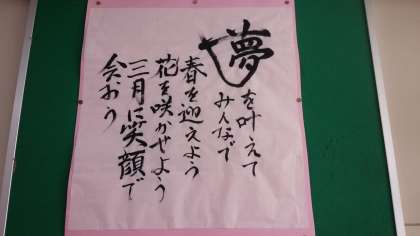 夢を叶えて
みんなで
春を迎えよう
花を咲かせよう
三月に笑顔で
会おう